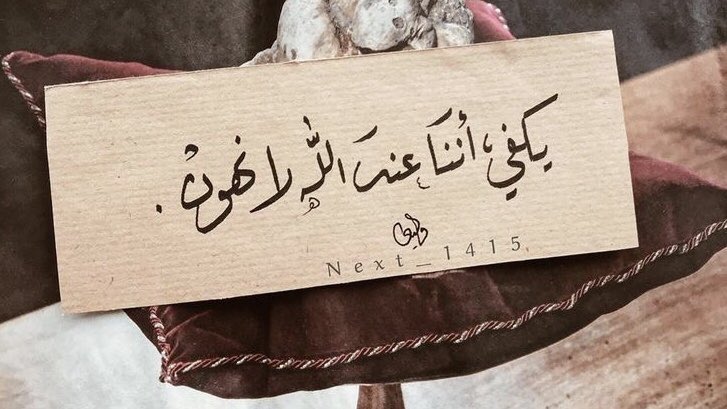 يكفي، أننَا عِندَ اللّٰه لا نهونْ.
Next_1415